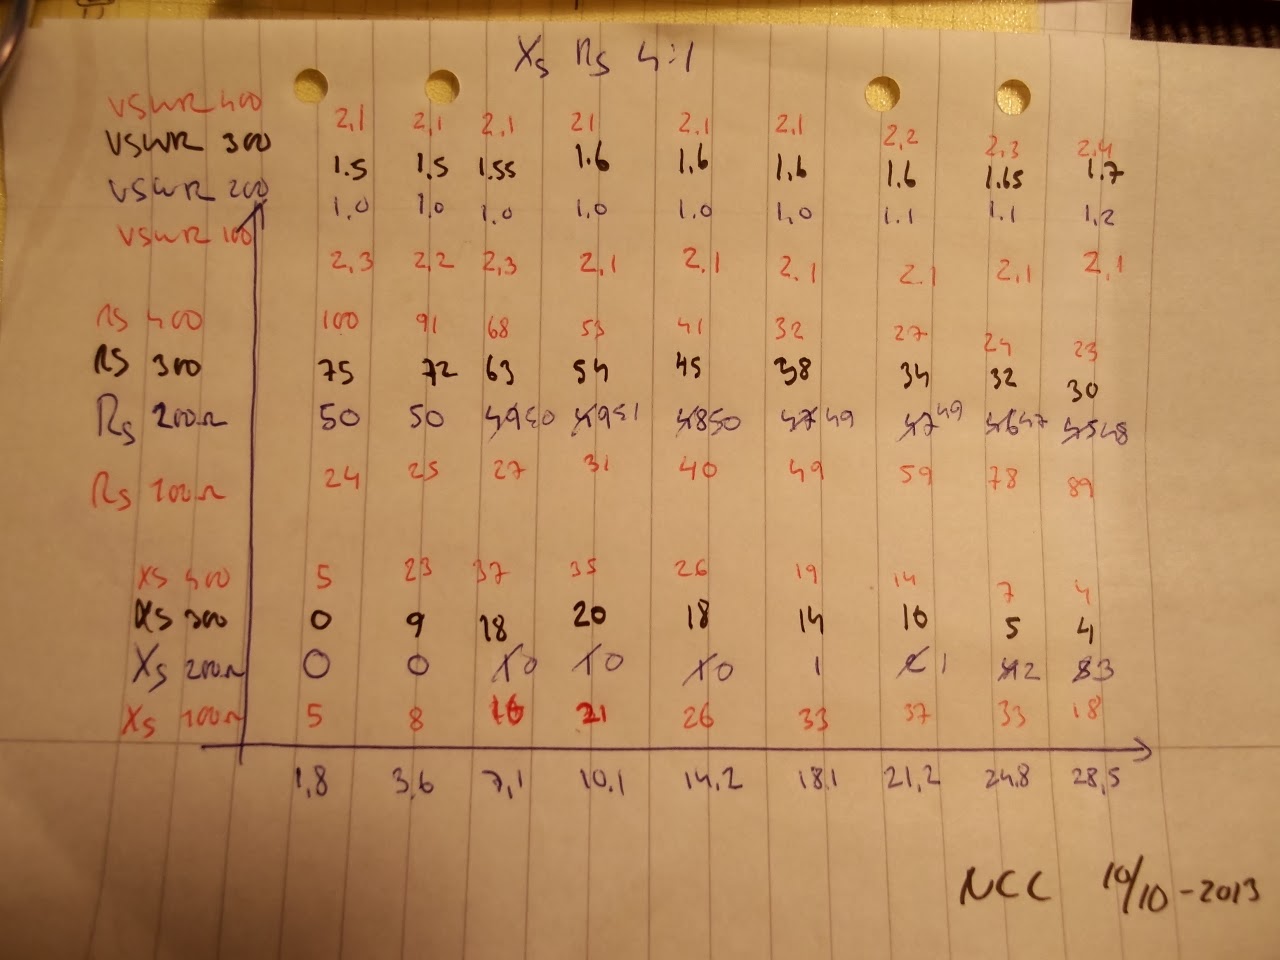 Xs Rs 4:1
VSWR 400 2,1 2,1 2,1 21 2.1 2,1 2,2 2,3 2,4
VSWR 300 1.5 1.5 1.55 1.6 1.6 1,6 1.6 1.65 1.7
VSWR 200 1,0 1,0 1.0 1,0 1.0 1,0 1.1 1.1 1,2
VSWR 100 2,3 2,2 2,3 2,1 2.1 2.1 2.1 2,1 2,1
Rs 400 100 91 68 53 41 32 27 24 23
Rs 300 75 72 63 54 45 38 34 32 30
Rs 200Ω 50 50 49 50 49 51 48 50 47 49 47 49 46 47 45 48
Rs 100Ω 24 25 27 31 40 49 59 78 89
Xs 400 5 23 37 35 26 19 14 7 4
Xs 300 0 9 18 20 18 14 10 5 4
Xs 200Ω 0 0 1 0 1 0 1 0 1 1 2 3
Xs 100Ω 5 8 16 21 26 33 37 33 18
1,8 3,6 7,1 10,1 14,2 18,1 21,2 24,8 28,5
NCC 10/10-2013